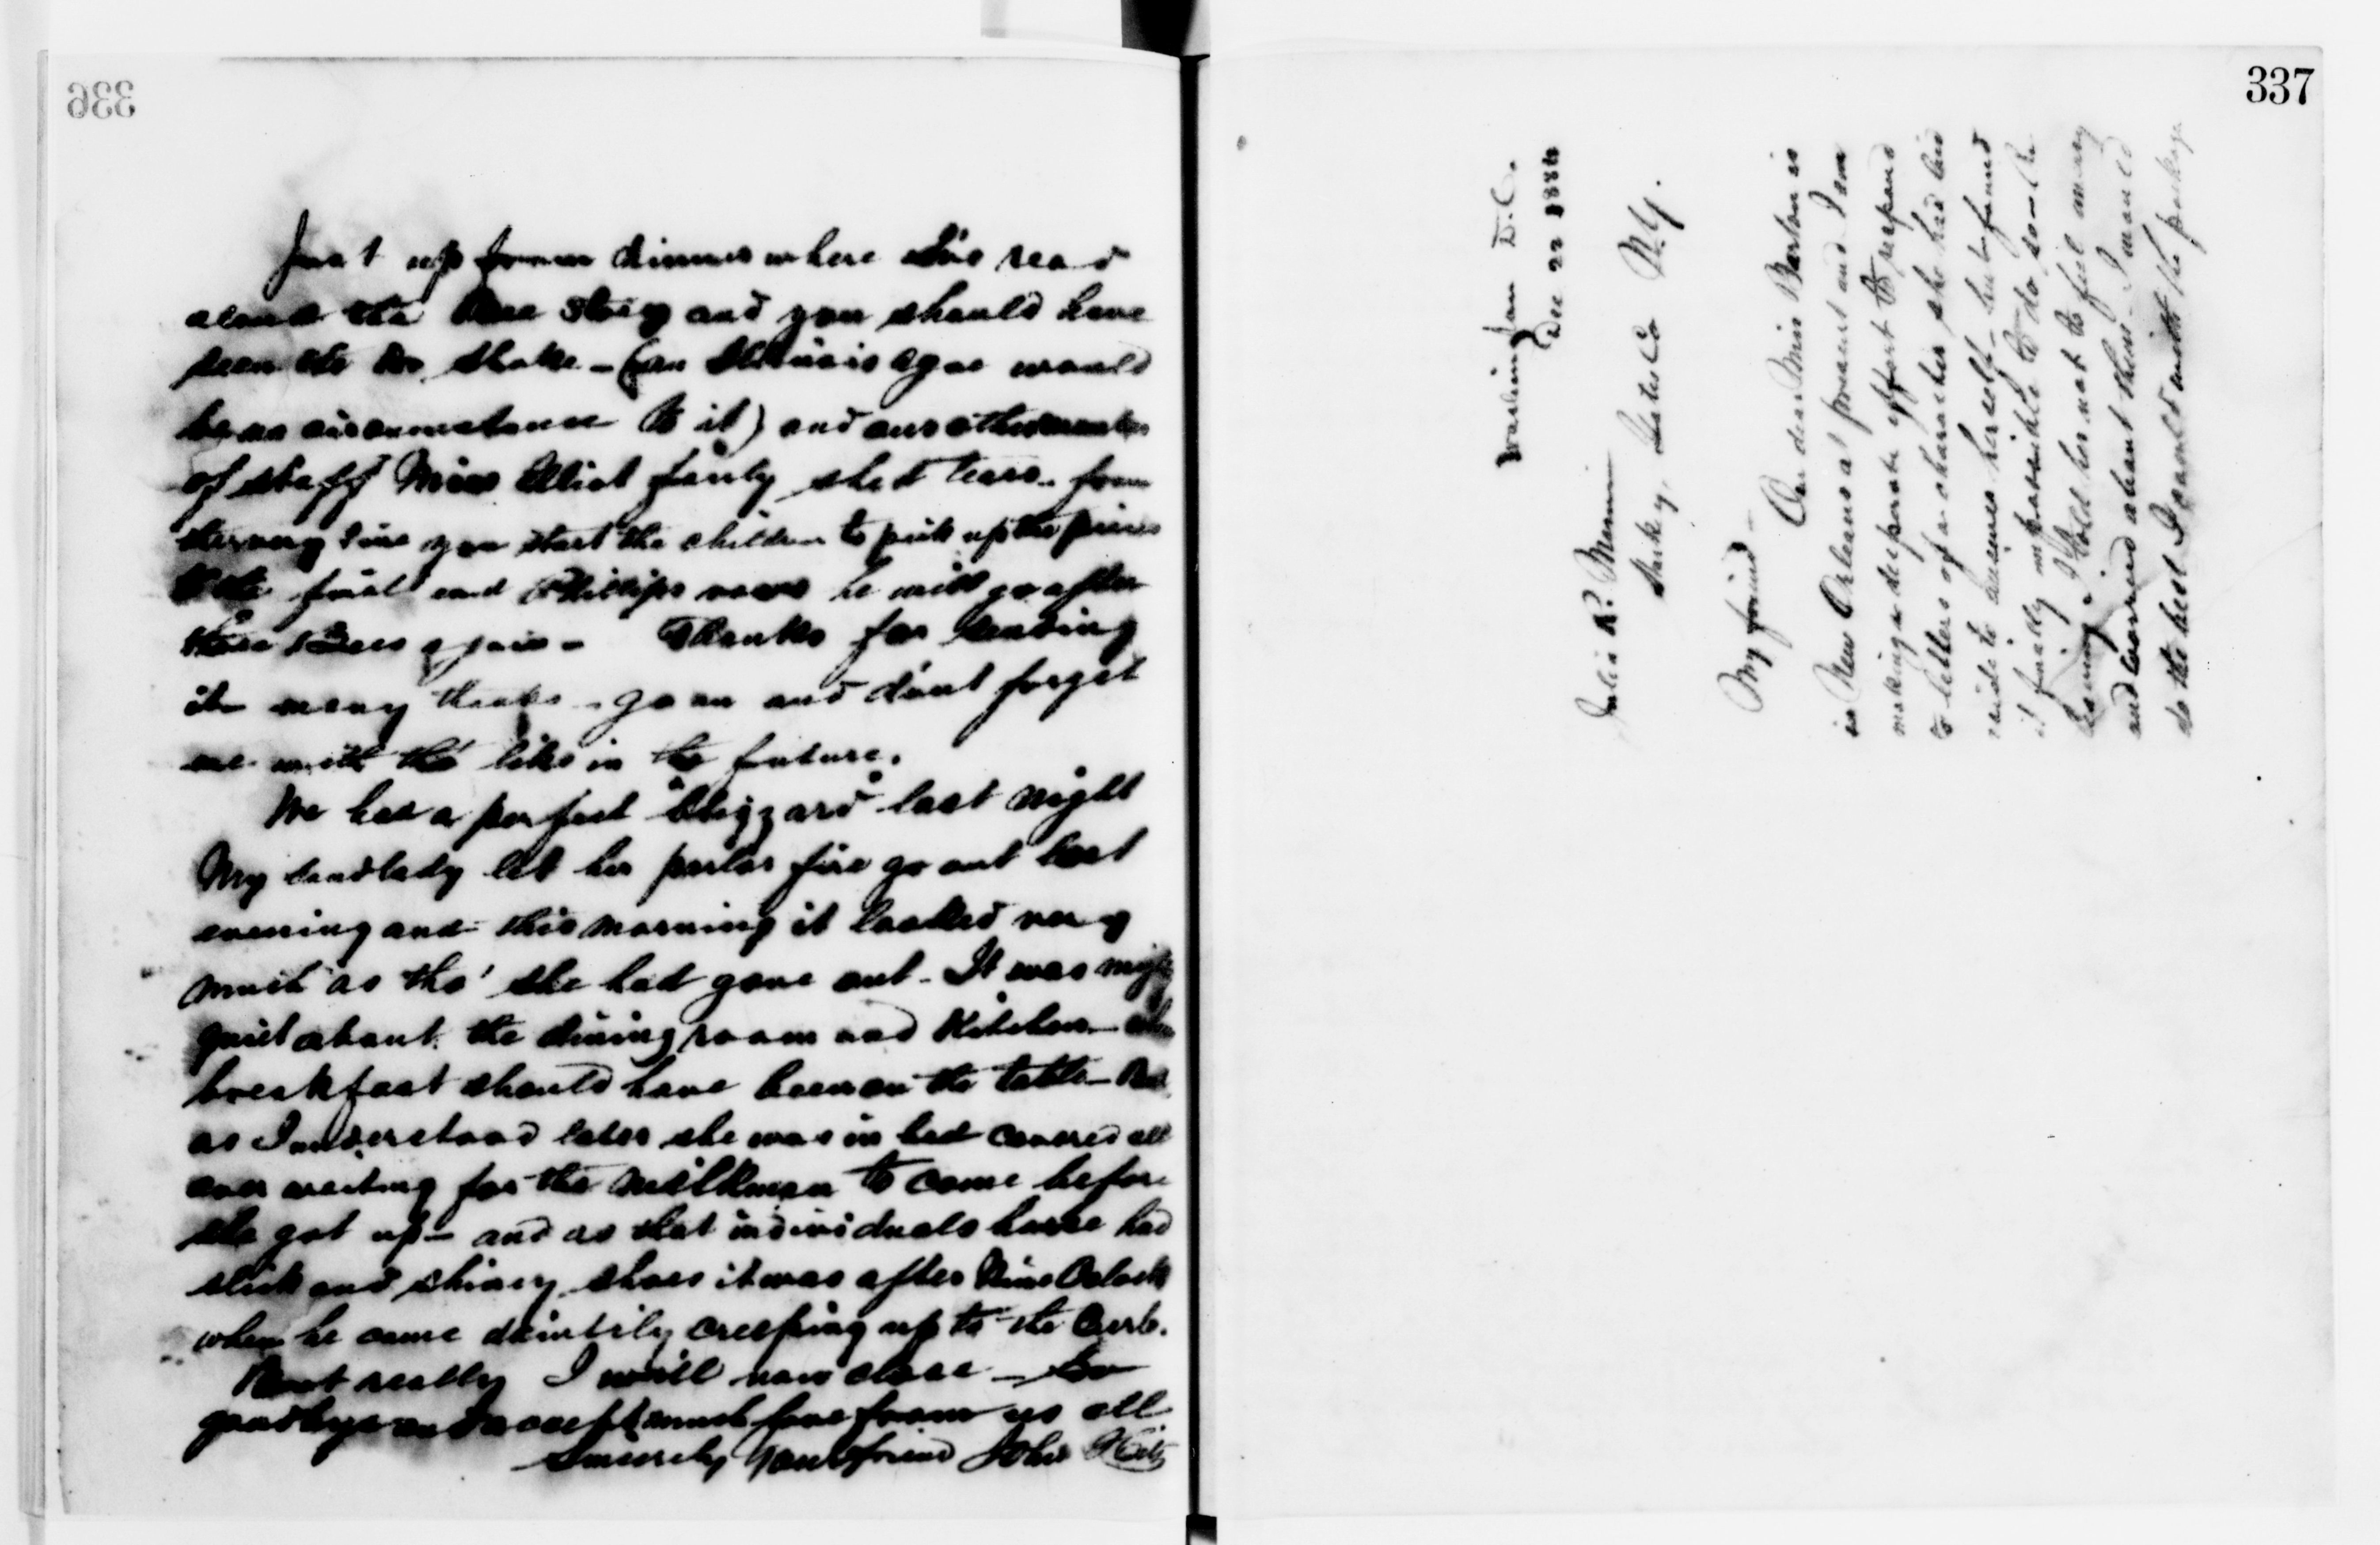 336
Just up from dinner where I've read
aloud the Bee Story and you should have
seen the Dr. Shake - (an Illinois ague would
be no circumstance to it) and our other member
of staff Miss Elliot fairly shed tears - from
the very time you start the children to pick up the
to the final end Phillips vows he will go after
those Bees again - Thanks for sending
it many thanks - go on and dont forget
me with the like in the future.
We had a perfect "blizzard" last night
My landlady let her parlor fire go out last
evening and this morning it looked very
much as tho' she had gone out - It was
quiet about the dining room and Kitchen - when
breakfast should have been on the table - But
as I understood later she was in bed covered all
over waiting for the milkman to come before
she got up - and as that individuals horse had
slick and shiney shoes it was after Nine Oclock
when he came daintily creeping up to the Curb.
But really I will now close - So
goodbye and accept much love from us all
Sincerely Your friend John Hitz
337
Washington D.C.
Dec 22 1884
Julia R.
Yates Co N.Y.
My friend -
Our dear Miss Barton is
in New Orleans at present and I am
making a desperate effort to respond
to letters of a character she had
to answer herself - but found
it finally impossible to do so - So
I told her not to feel
and worried about them - I would
do the best I could with the package